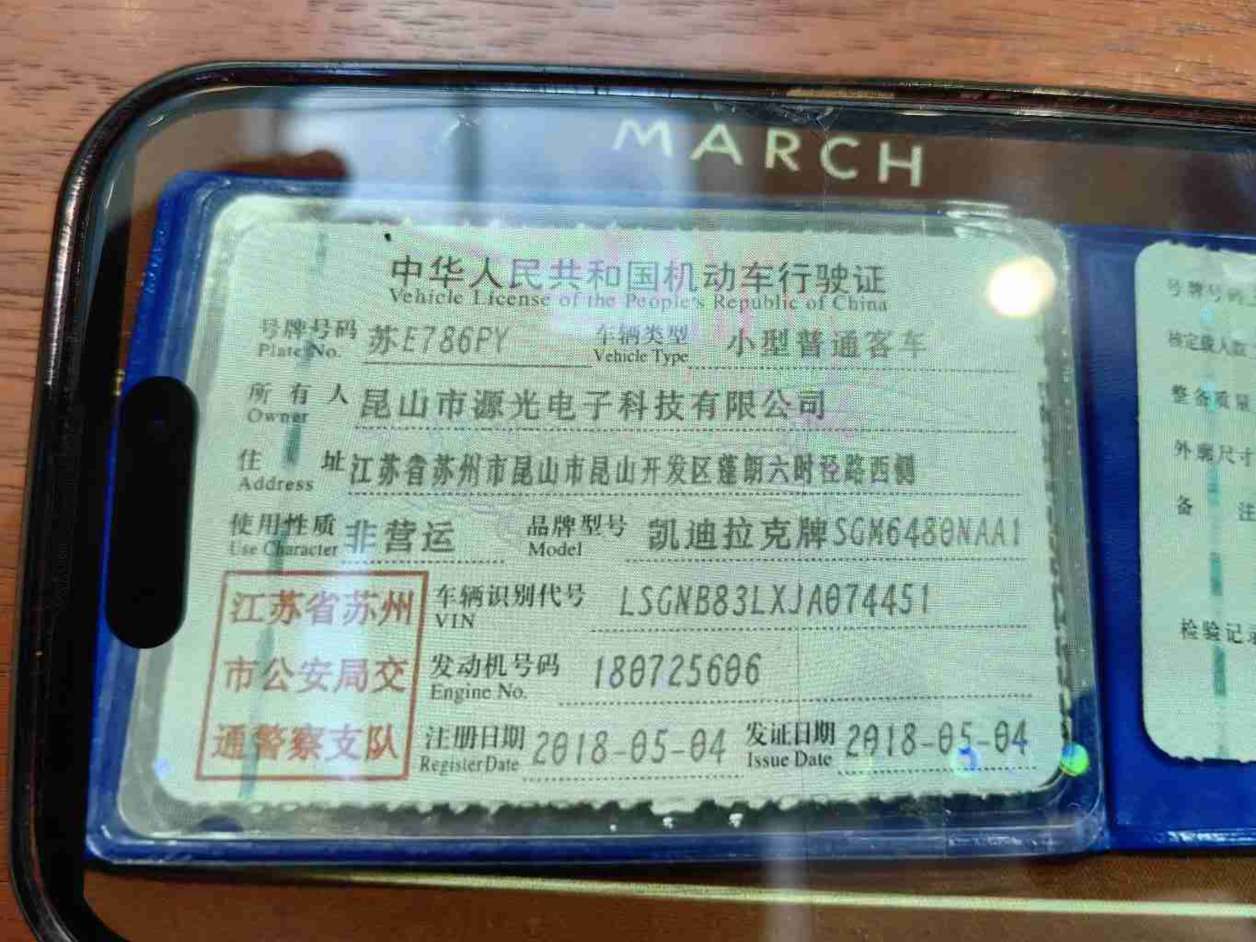 MARCH
中华人民共和国机动车行驶证
Vehicle License of the People's Republic of China
号牌号码 苏E786PY 车辆类型 小型普通客车
Plate No. Vehicle Type
所有人 昆山市源光电子科技有限公司
Owner
住址 江苏省苏州市昆山市昆山开发区蓬朗六时泾路西侧
Address
使用性质 非营运 品牌型号 凯迪拉克牌SGM6480NAA1
Use Character Model
江苏省苏州
市公安局交
通警察支队
车辆识别代号 LSGNB83LXJA074451
VIN
发动机号码 180725606
Engine No.
注册日期 2018-05-04 发证日期 2018-05-04
Register Date Issue Date
号牌号码
核定载人数
整备质量
外廓尺寸
备 注
检验记录